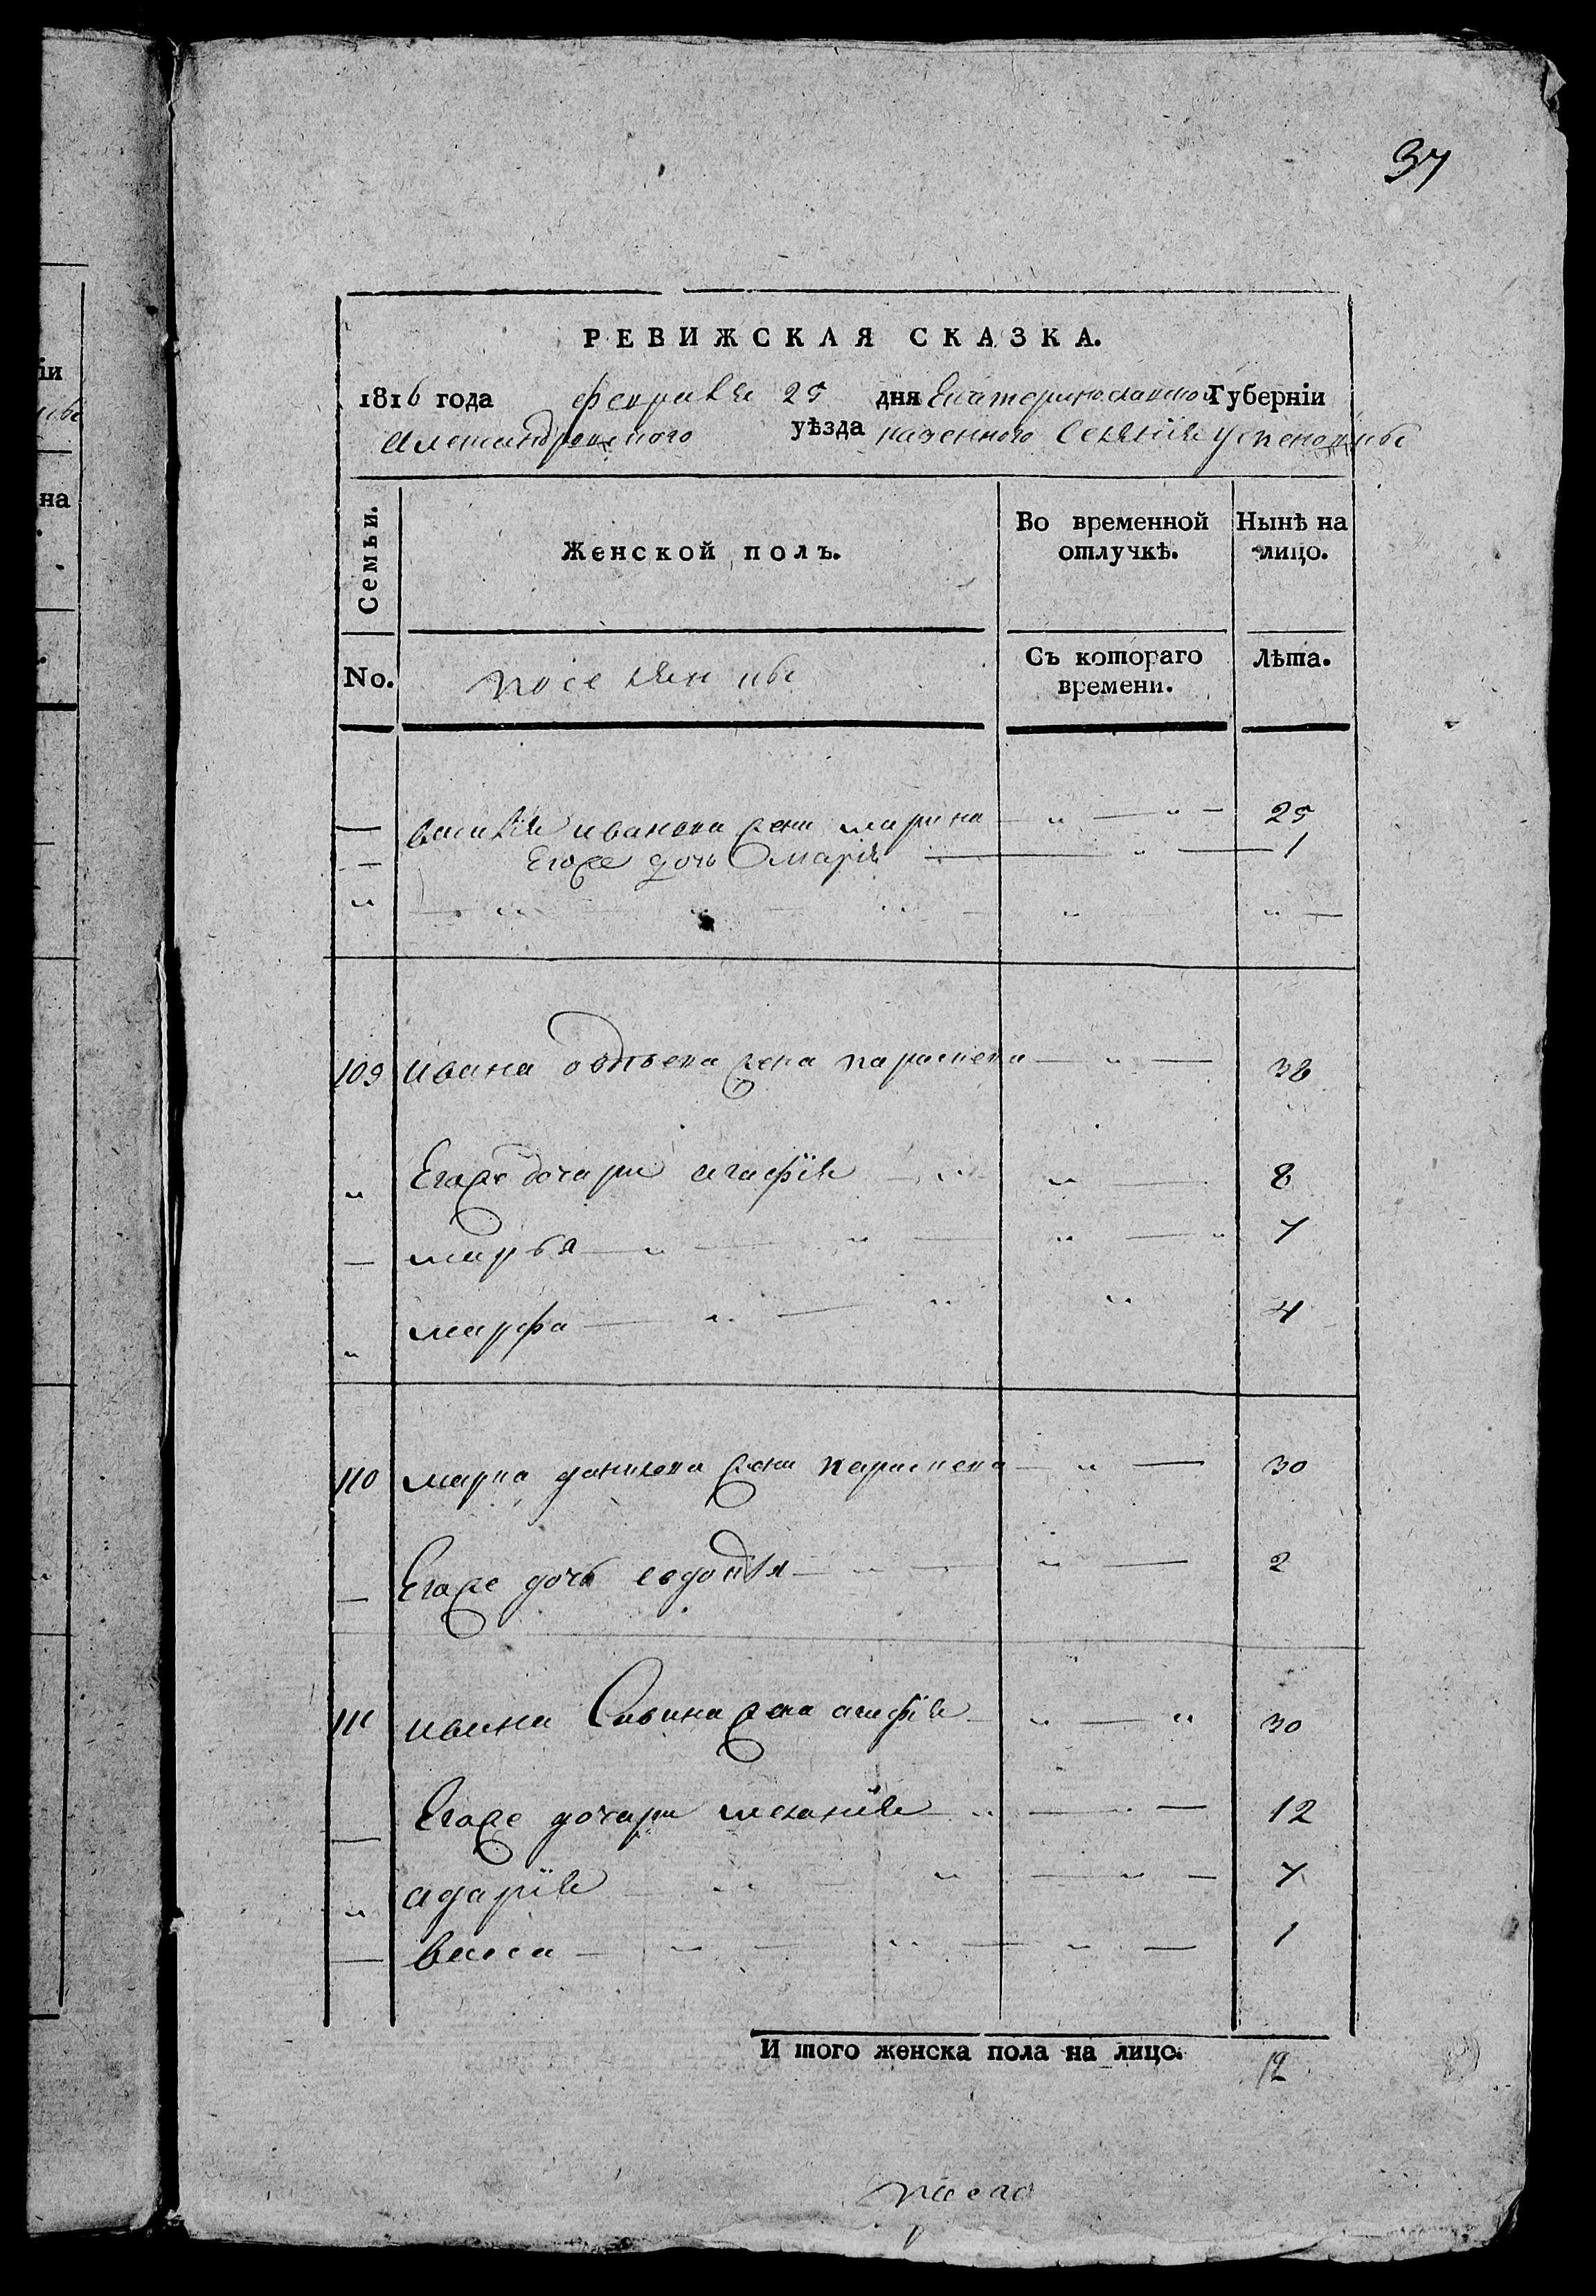 37
РЕВИЖСКАЯ СКАЗКА.
1816 года февраля 25 дня Екатеринославской Губерніи
Александровского уѣзда казенного Селенія Успеновки
Семьи. Женской полъ. Во временной отлучкѣ. Нынѣ на лицо.
No. поселянки Съ котораго времени. Лѣта.
василія иванова жена марина 25
Егоже дочь марія 1
109 ивана овдѣева жена параскева 38
Егоже дочери агафія 8
марья 7
марфа 4
110 марка данилова жена параскева 30
Егоже дочь евдокія 2
111 ивана Савина жена агафія 30
Егоже дочери меланія 12
адарія 7
васса 1
И того женска пола на лицо. 12
іи
на